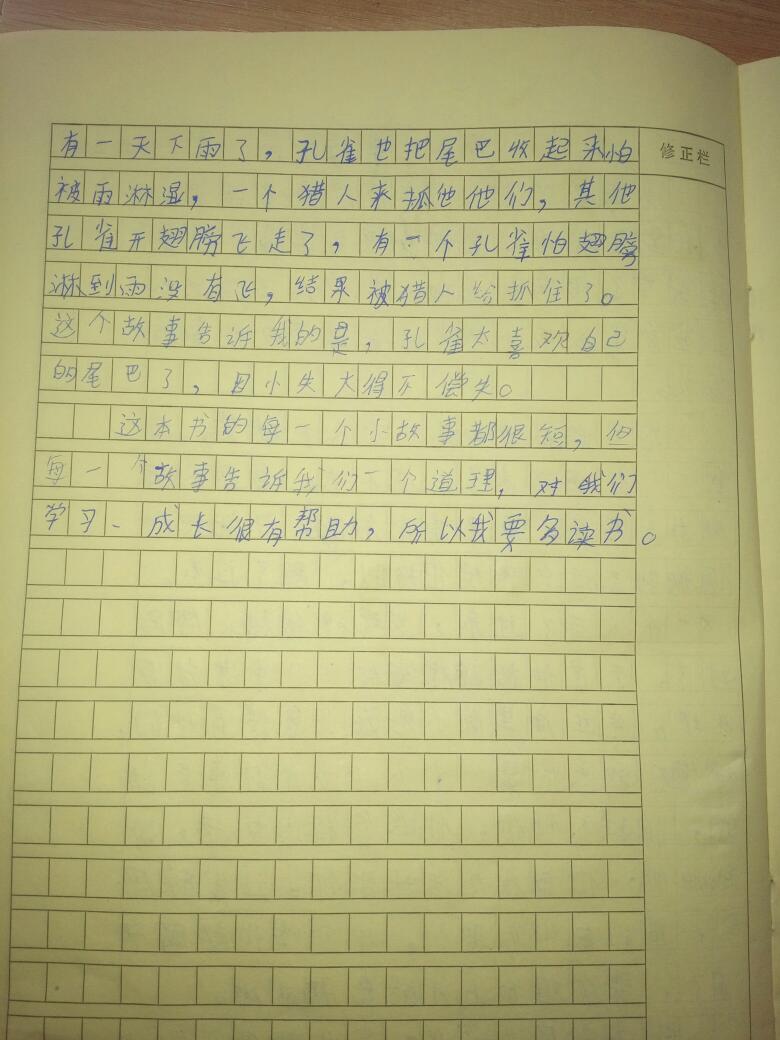 有一天下雨了，孔雀也把尾巴收起来怕
修正栏
被雨淋湿，一个猎人来抓他他们，其他
孔雀开翅膀飞走了，有一个孔雀怕翅膀
淋到雨没有飞，结果被猎人给抓住了。
这个故事告诉我的是，孔雀太喜欢自己
的尾巴了，因小失大得不偿失。
这本书的每一个小故事都很短，但
每一个故事告诉我们一个道理，对我们
学习、成长很有帮助，所以我要多读书。